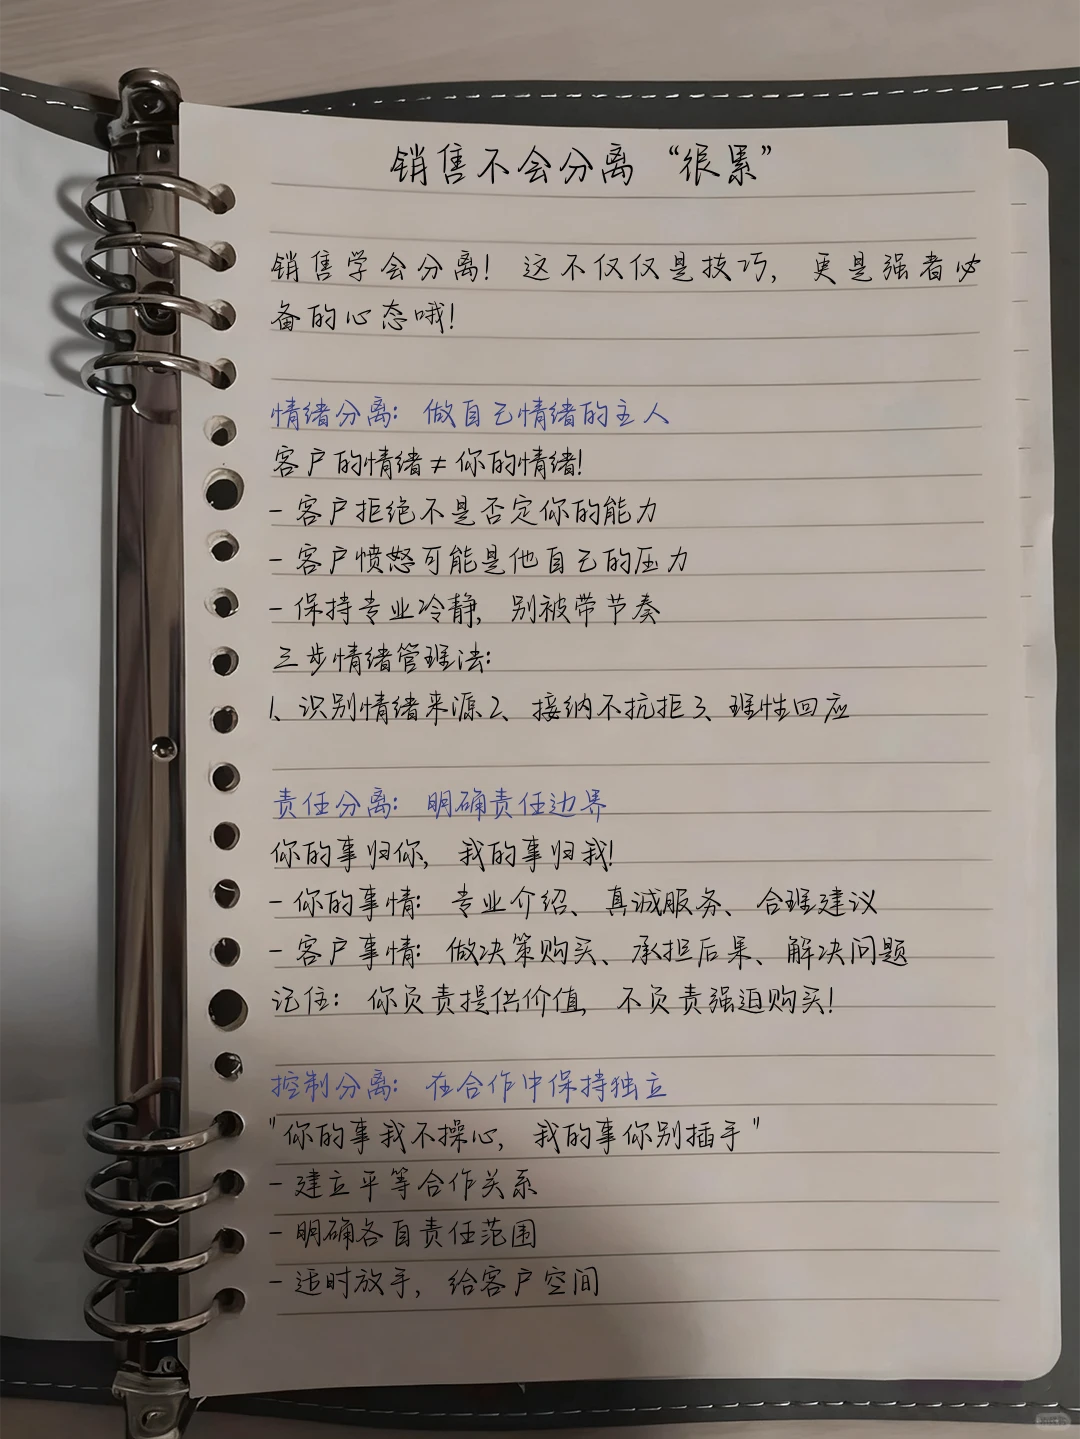 销售不会分离“很累”
销售学会分离！这不仅仅是技巧，更是强者必
备的心态哦！
情绪分离：做自己情绪的主人
客户的情绪≠你的情绪！
- 客户拒绝不是否定你的能力
- 客户愤怒可能是他自己的压力
- 保持专业冷静，别被带节奏
三步情绪管理法：
1、识别情绪来源2、接纳不抗拒3、理性回应
责任分离：明确责任边界
你的事归你，我的事归我！
- 你的事情：专业介绍、真诚服务、合理建议
- 客户事情：做决策购买、承担后果、解决问题
记住：你负责提供价值，不负责强迫购买！
控制分离：在合作中保持独立
"你的事我不操心，我的事你别插手"
- 建立平等合作关系
- 明确各自责任范围
- 适时放手，给客户空间